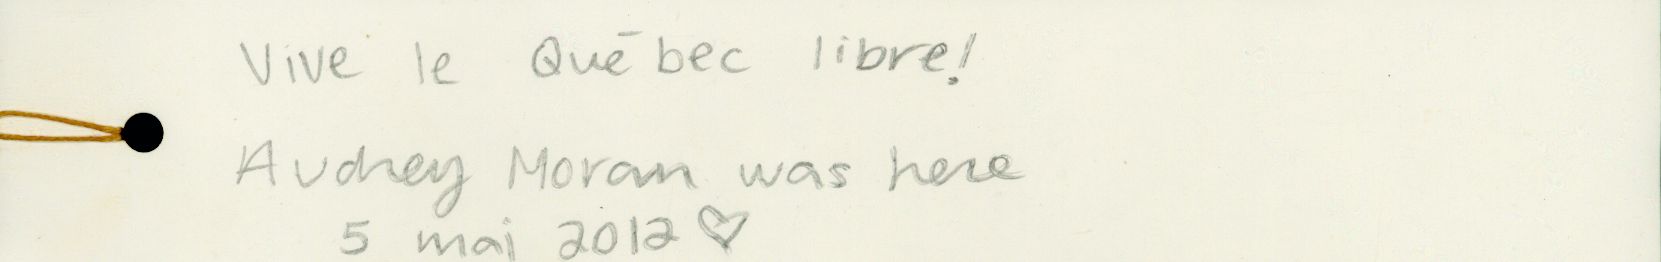 Vive le Québec libre!
Audrey Moran was here
5 mai 2012 ♡